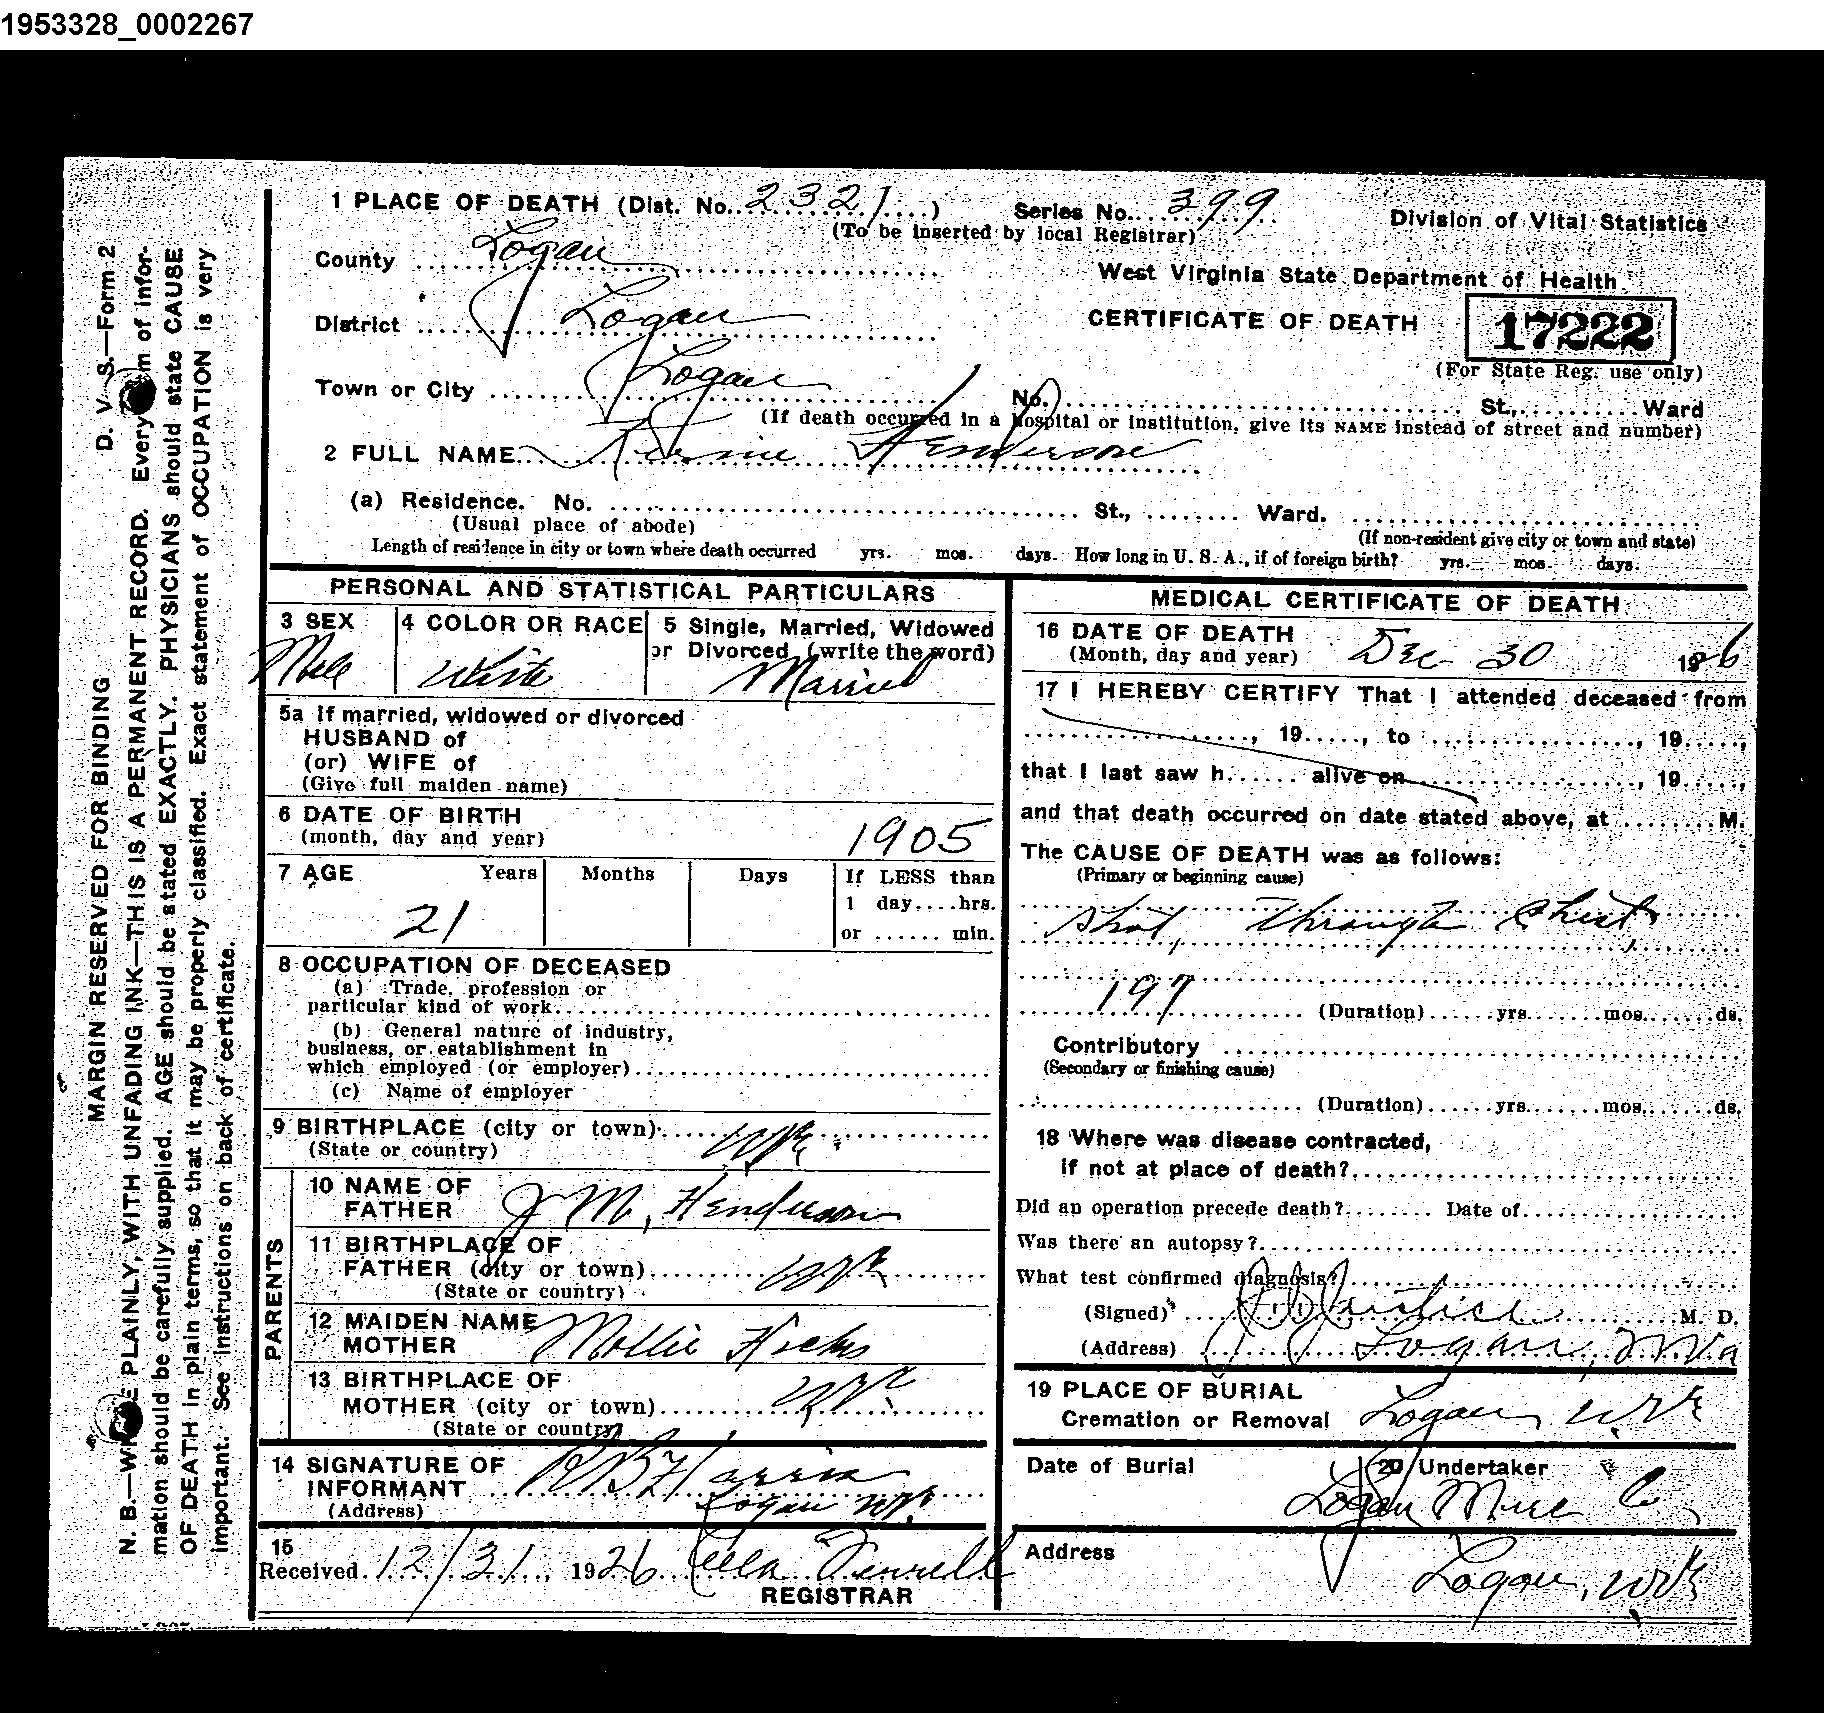 1953328_0002267
D. V. S.—Form 2
MARGIN RESERVED FOR BINDING
N. B.—WRITE PLAINLY, WITH UNFADING INK—THIS IS A PERMANENT RECORD. Every item of infor-
mation should be carefully supplied. AGE should be stated EXACTLY. PHYSICIANS should state CAUSE
OF DEATH in plain terms, so that it may be properly classified. Exact statement of OCCUPATION is very
important. See instructions on back of certificate.
1 PLACE OF DEATH (Dist. No. 2321) Series No. 399
(To be inserted by local Registrar)
Division of Vital Statistics
County Logan
West Virginia State Department of Health
District Logan
CERTIFICATE OF DEATH 17222
(For State Reg. use only)
Town or City Logan No. St., Ward
(If death occurred in a hospital or institution, give its NAME instead of street and number)
2 FULL NAME Henderson
(a) Residence. No. St., Ward.
(Usual place of abode) (If non-resident give city or town and state)
Length of residence in city or town where death occurred yrs. mos. days. How long in U. S. A., if of foreign birth? yrs. mos. days.
PERSONAL AND STATISTICAL PARTICULARS
3 SEX 4 COLOR OR RACE 5 Single, Married, Widowed
or Divorced (write the word)
Male White Married
5a If married, widowed or divorced
HUSBAND of
(or) WIFE of
(Give full maiden name)
6 DATE OF BIRTH
(month, day and year) 1905
7 AGE Years Months Days If LESS than
1 day....hrs.
or ...... min.
21
8 OCCUPATION OF DECEASED
(a) Trade, profession or
particular kind of work
(b) General nature of industry,
business, or establishment in
which employed (or employer)
(c) Name of employer
9 BIRTHPLACE (city or town) W Va
(State or country)
PARENTS
10 NAME OF
FATHER J M. Henderson
11 BIRTHPLACE OF
FATHER (city or town) W Va
(State or country)
12 MAIDEN NAME
MOTHER Mollie
13 BIRTHPLACE OF
MOTHER (city or town) W Va
(State or country)
14 SIGNATURE OF
INFORMANT R B Harris
(Address) Logan W Va
15
Received 12/31, 1926
REGISTRAR
MEDICAL CERTIFICATE OF DEATH
16 DATE OF DEATH
(Month, day and year) Dec 30 1926
17 I HEREBY CERTIFY That I attended deceased from
, 19....., to , 19.....,
that I last saw h...... alive on , 19.....,
and that death occurred on date stated above, at M.
The CAUSE OF DEATH was as follows:
(Primary or beginning cause)
Shot, through Chest
197
(Duration) yrs. mos. ds.
Contributory
(Secondary or finishing cause)
(Duration) yrs. mos. ds.
18 Where was disease contracted,
if not at place of death?
Did an operation precede death? Date of
Was there an autopsy?
What test confirmed diagnosis?
(Signed) M. D.
(Address) Logan, W Va
19 PLACE OF BURIAL
Cremation or Removal Logan W Va
Date of Burial 20 Undertaker
Logan Co
Address
Logan, W Va